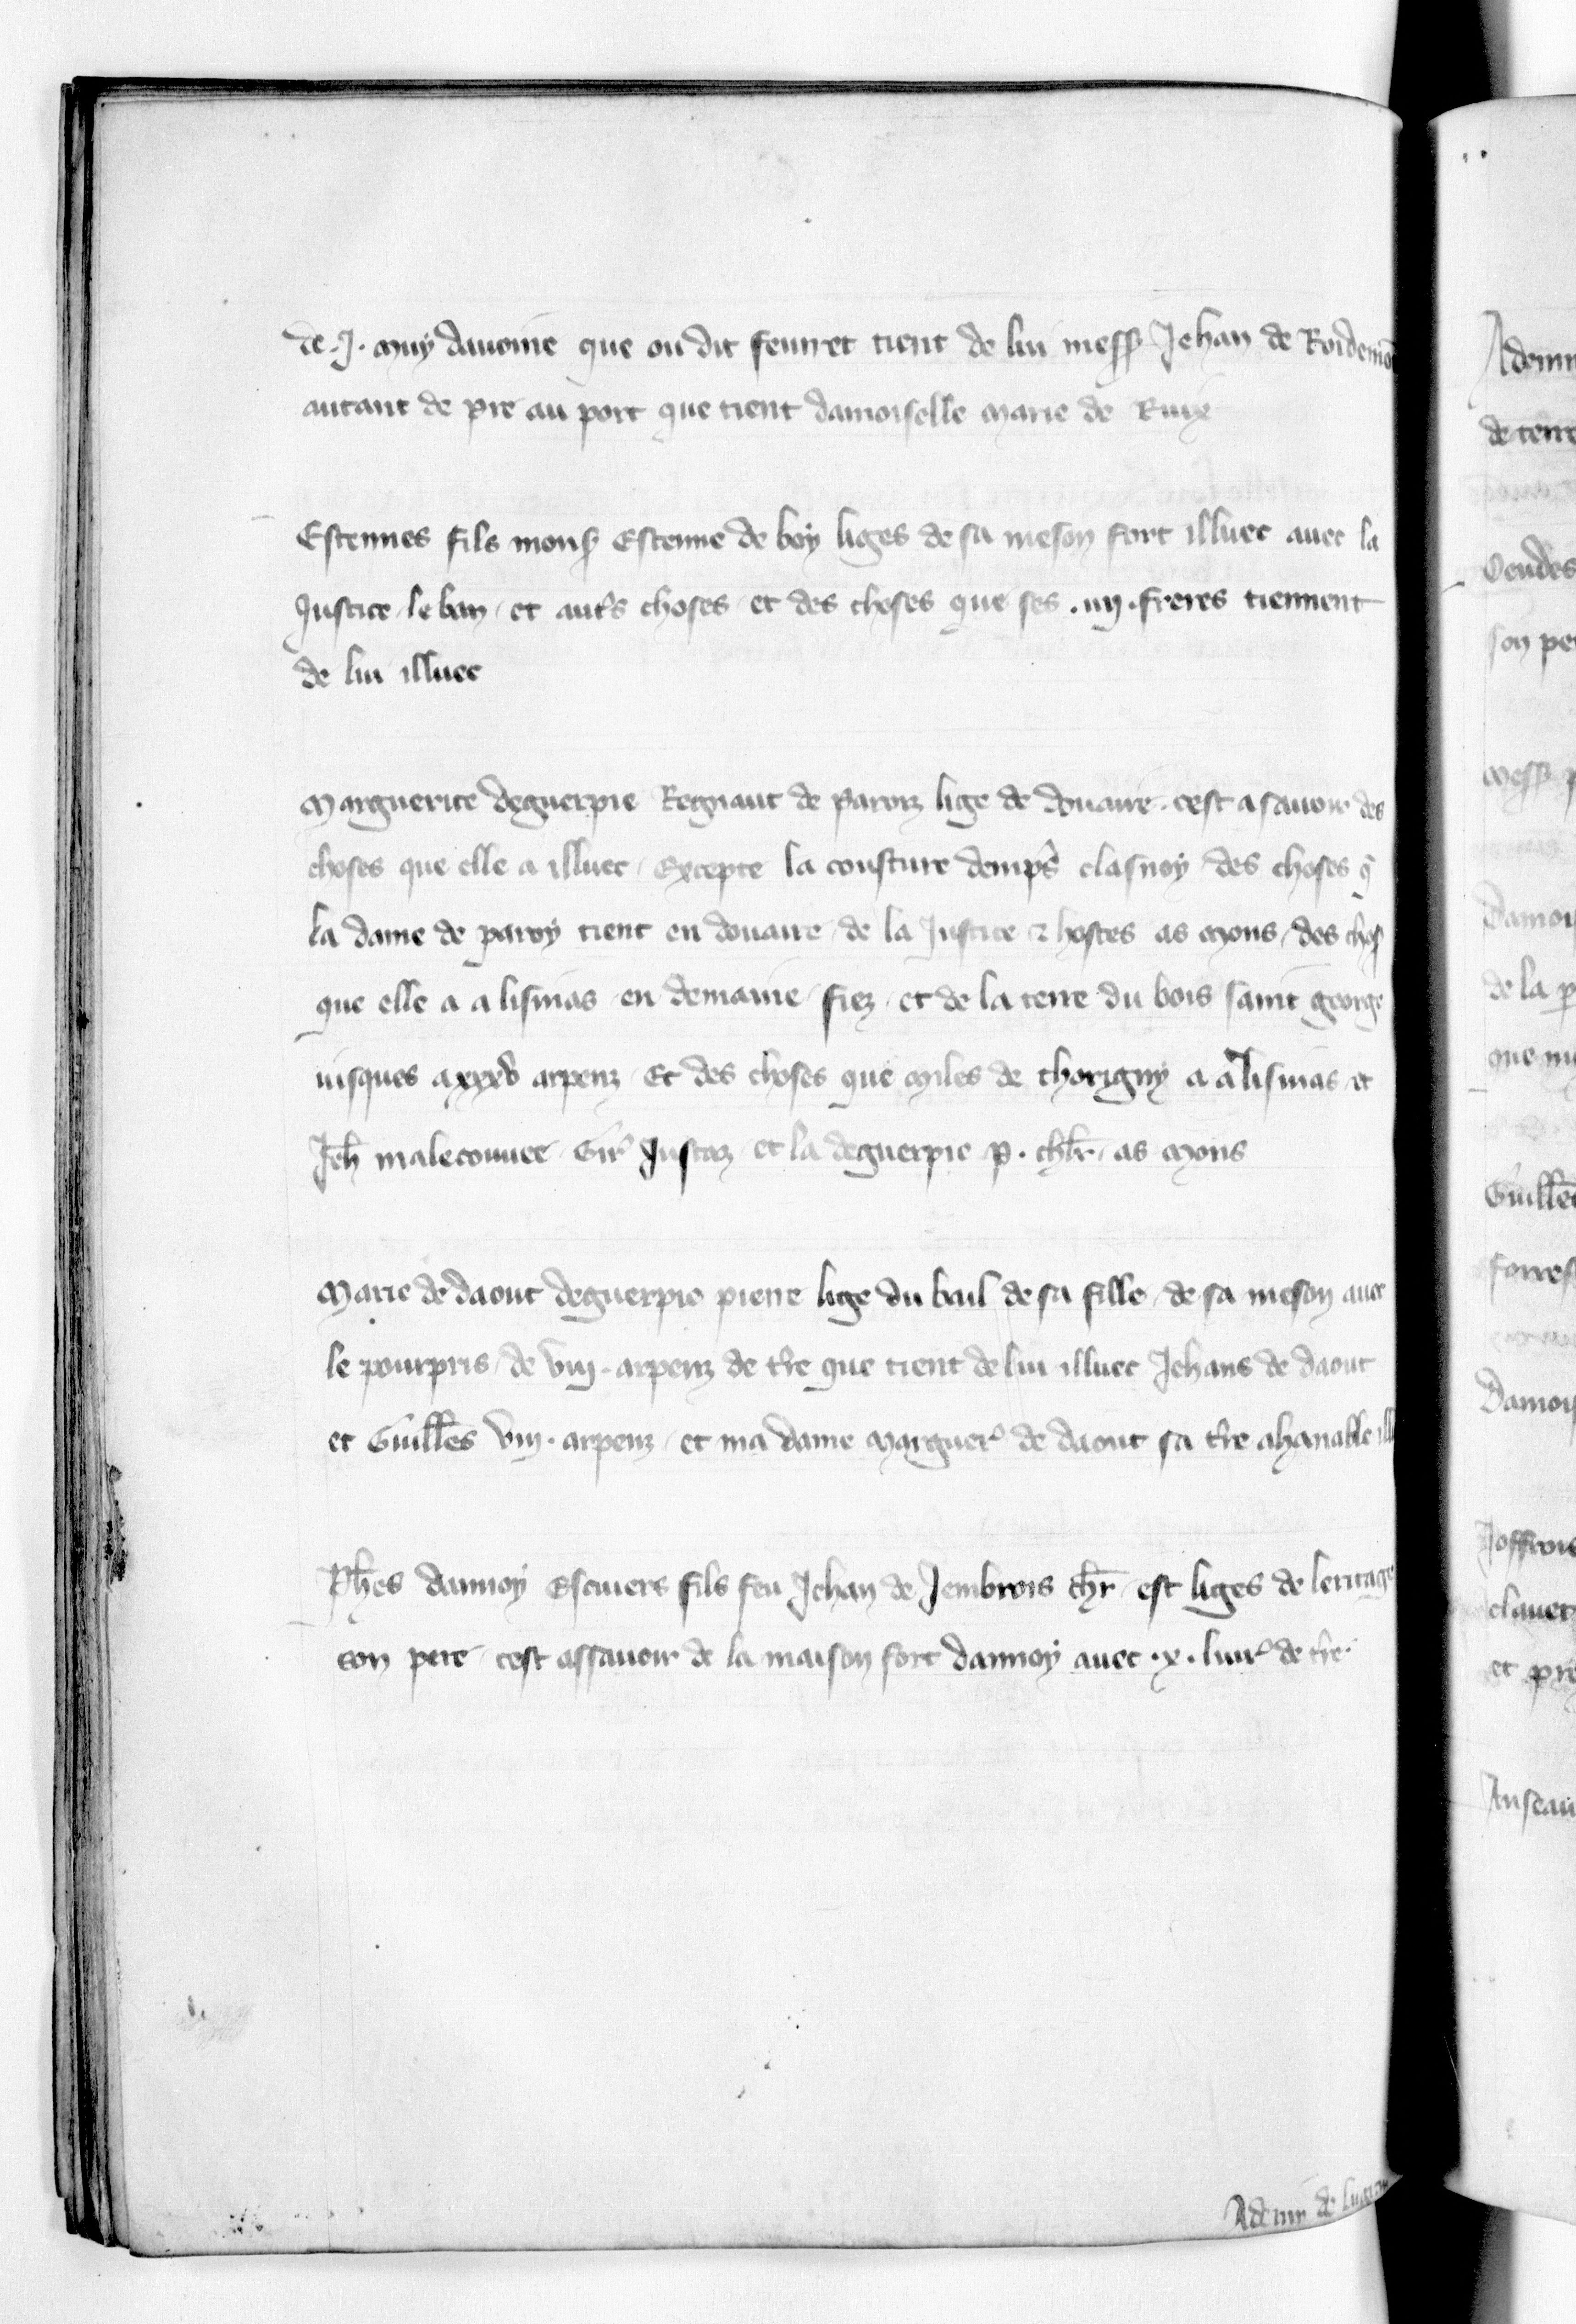 de .j. muy davoine que ou dit feurret tient de lui mess Jehan de Roidemo
autant de pre au port que tient damoiselle Marie de
Estennes fils mons Estenne de boy liges de sa meson fort illuec avec la
Justice le ban et aut's choses et des choses que ses .iiij. freres tiennent
de lui illuec
Marguerite deguerpie Regnaut de Paroiz lige de douaire cest a savoir des
choses que elle a illuec Excepte la cousture demps clasnoy des choses q
la dame de paroy tient en douaire de la Justice & hostes as Mons des chos
que elle a a lisinas en demaine fiez et de la terre du bois saint george
iusques a xxxv arpenz Et des choses que Miles de thorigny a a lisinas et
Jeh maleconvee Gir' et la deguerpie P. chlr as Mons
Marie de daout deguerpie pierre lige du bail de sa fille de sa meson avec
le pourpris de viij. arpenz de t're que tient de lui illuec Jehans de daout
et Guill'es viij. arpenz et ma dame Marguer' de daout sa t're ahanable ill
Ph'es dannoy Escuiers fils feu Jehan de Jembrois ch'r est liges de leritage
son pere cest assavoir de la maison fort dannoy avec .x. livr' de t're
Ademin
de terre
Oeudes
son pe
Mess p
Damois
de la p
que
Guill'e
forres
Damois
Joffrois
clavet
et pre
Anseau
Ademin de